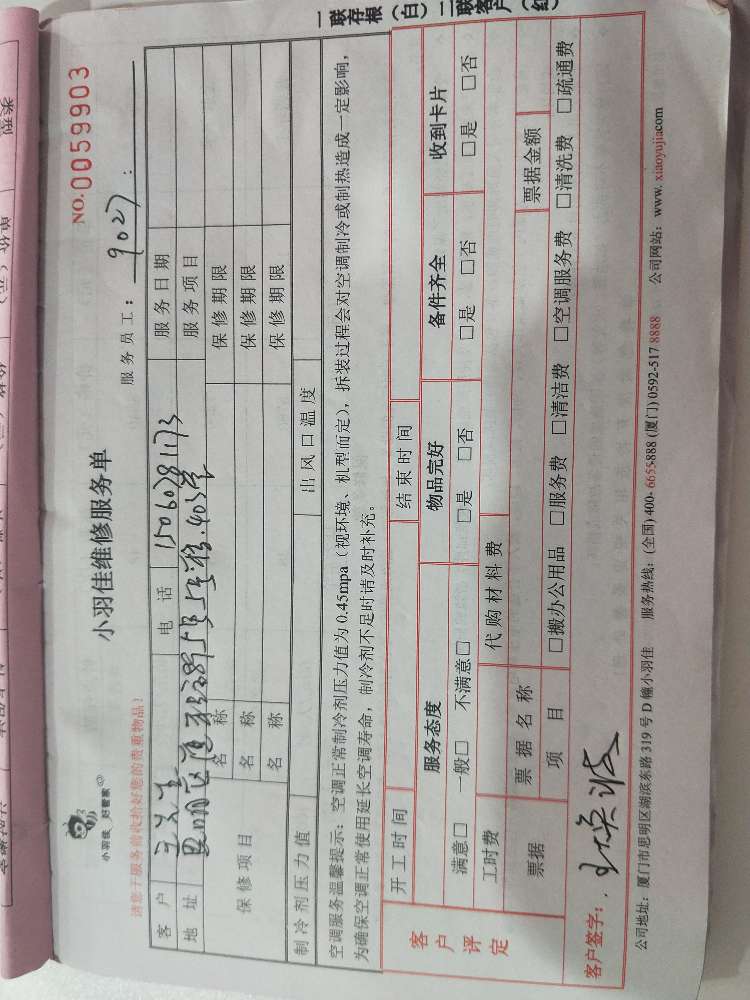 一联存根（白）二联客户（红）
小羽佳 好管家
小羽佳维修服务单
NO.0059903
请您于服务前收拾好您的贵重物品！
服务员工：9027
客户 王先生 电话 15060281173 服务日期
地址 思明区 403室 服务项目
保修项目
名称 保修期限
名称 保修期限
名称 保修期限
制冷剂压力值 出风口温度
空调服务温馨提示：空调正常制冷剂压力值为0.45mpa（视环境、机型而定），拆装过程会对空调制冷或制热造成一定影响，
为确保空调正常使用延长空调寿命，制冷剂不足时请及时补充。
客户评定
开工时间 结束时间
服务态度 物品完好 备件齐全 收到卡片
满意□ 一般□ 不满意□ □是 □否 □是 □否 □是 □否
工时费 代购材料费
票据 票据名称 票据金额
项目 □搬办公用品 □服务费 □清洁费 □空调服务费 □清洗费 □疏通费
客户签字：王焕波
公司地址：厦门市思明区湖滨东路319号D幢小羽佳 服务热线：(全国) 400-6655-888 (厦门) 0592-517 8888 公司网站：www. xiaoyujia.com